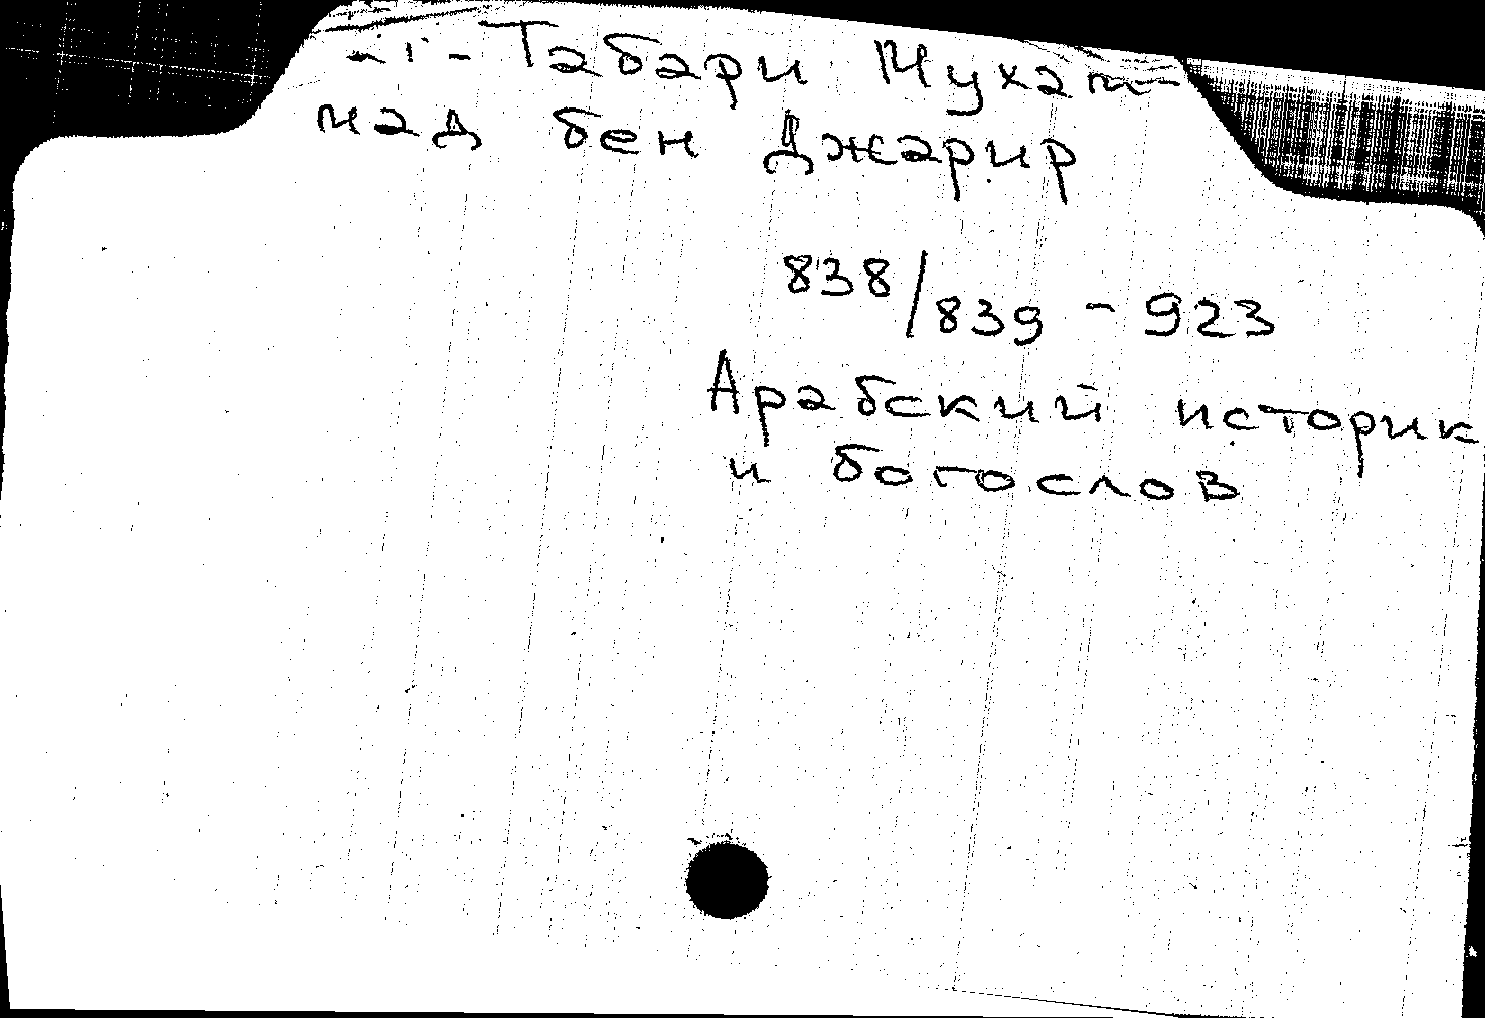 ат-Табари Мухам-
мад бен Джарир
838/839 - 923
Арабский историк
и богослов